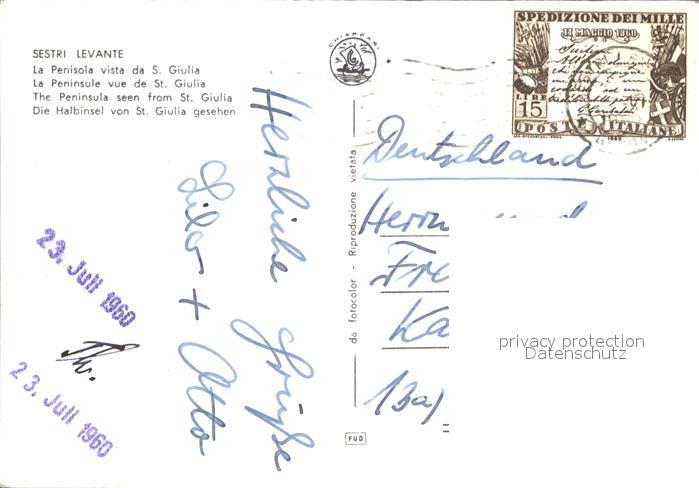 SESTRI LEVANTE
La Penisola vista da S. Giulia
La Peninsule vue de St. Giulia
The Peninsula seen from St. Giulia
Die Halbinsel von St. Giulia gesehen
CHIAPPARI
SPEDIZIONE DEI MILLE
11 MAGGIO 1860
LIRE
15
POSTE ITALIANE
Deutschland
Herrn
Fre
Ka
13a)
Herzliche Grüße
+ Otto
23. Juli 1960
Th.
23. Juli 1960
da fotocolor - Riproduzione vietata
FUD
privacy protection
Datenschutz